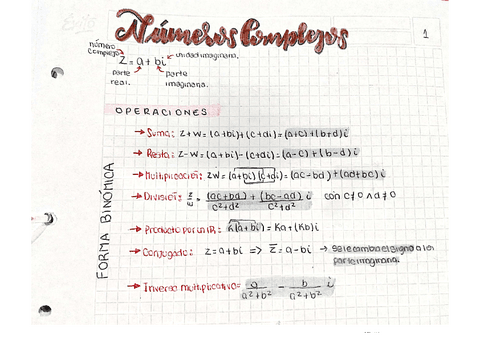 Números Complejos
1
número complejo
Z = a + bi
unidad imaginaria.
parte real.
parte imaginaria.
OPERACIONES
FORMA BINÓMICA
→ Suma: Z+W = (a+bi)+(c+di) = (a+c)+(b+d)i
→ Resta: Z-W = (a+bi)-(c+di) = (a-c)+(b-d)i
→ Multiplicación: ZW = (a+bi)(c+di) = (ac-bd)+(ad+bc)i
→ División: z/w = (ac+bd)/(c²+d²) + (bc-ad)/(c²+d²) i con c≠0 ∧ d≠0
→ Producto por un IR: K(a+bi) = Ka+(Kb)i
→ Conjugado: z = a+bi => z̄ = a-bi → Se le cambia el signo a la
parte imaginaria.
→ Inverso multiplicativo = a/(a²+b²) - b/(a²+b²) i